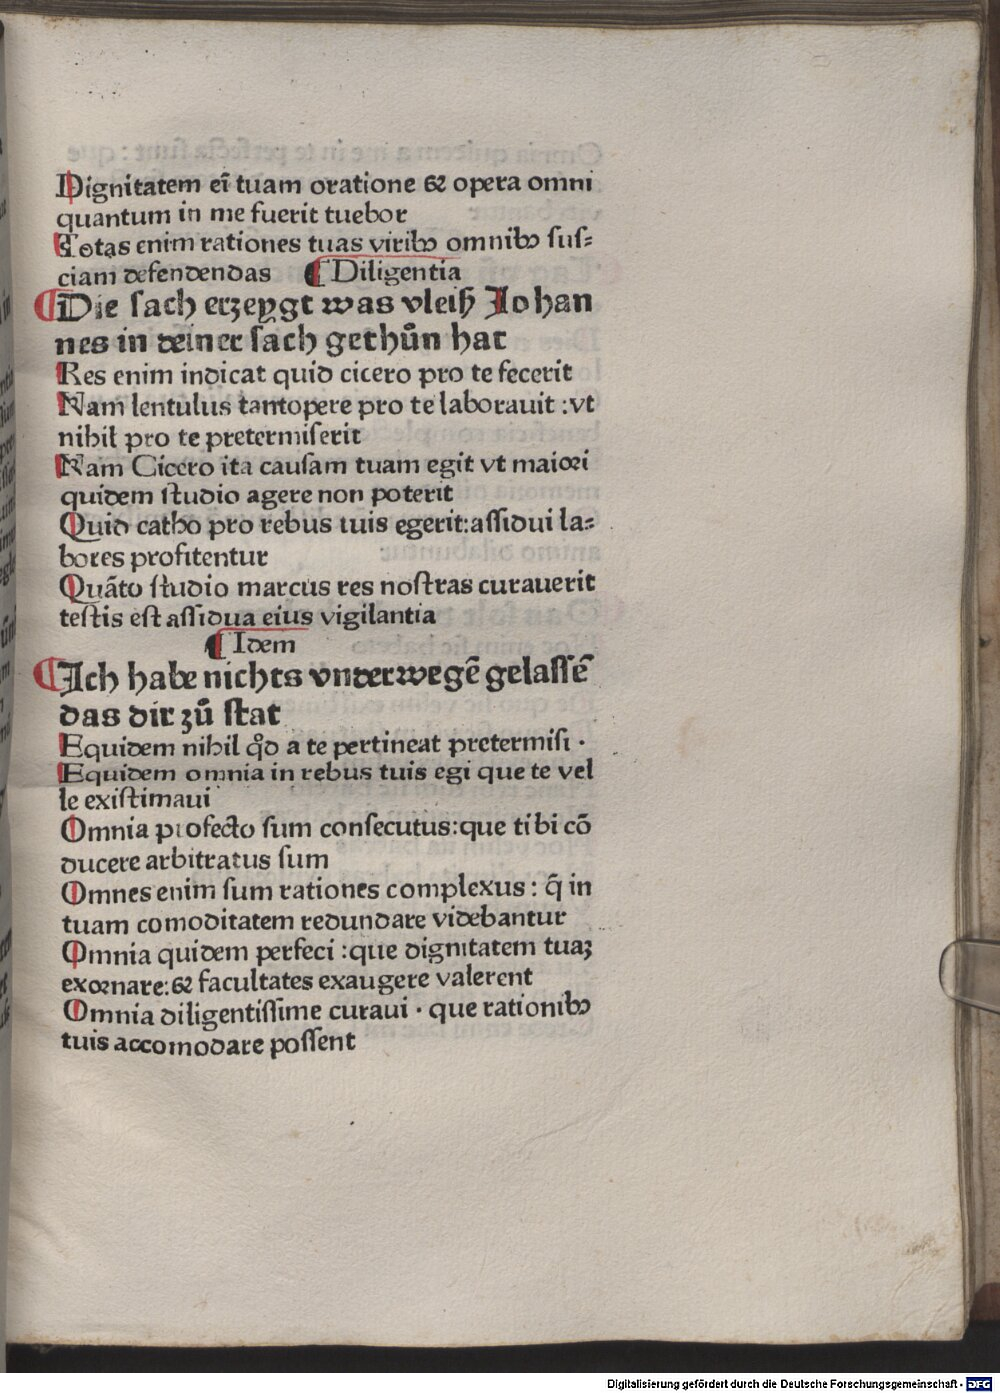 Dignitatem eī tuam oratione & opera omni
quantum in me fuerit tuebor
Totas enim rationes tuas viribꝰ omnibꝰ sus⸗
ciam defendendas ¶ Diligentia
¶ Die sach erzeygt was vleiß Johan
nes in deiner sach gethůn hat
Res enim indicat quid cicero pro te fecerit
Nam lentulus tantopere pro te laborauit :vt
nihil pro te pretermiserit
Nam Cicero ita causam tuam egit vt maiori
quidem studio agere non poterit
Quid catho pro rebus tuis egerit:assidui la⸗
bores profitentur
Quāto studio marcus res nostras curauerit
testis est assidua eius vigilantia
¶ Idem
¶ Ich habe nichts vnderwegē gelassē
das dir zů stat
Equidem nihil qd̄ a te pertineat pretermisi ·
Equidem omnia in rebus tuis egi que te vel
le existimaui
Omnia profecto sum consecutus:que tibi cō
ducere arbitratus sum
Omnes enim sum rationes complexus : q̄ in
tuam comoditatem redundare videbantur
Omnia quidem perfeci :que dignitatem tuaꝫ
exornare:& facultates exaugere valerent
Omnia diligentissime curaui · que rationibꝰ
tuis accomodare possent
Digitalisierung gefördert durch die Deutsche Forschungsgemeinschaft - DFG